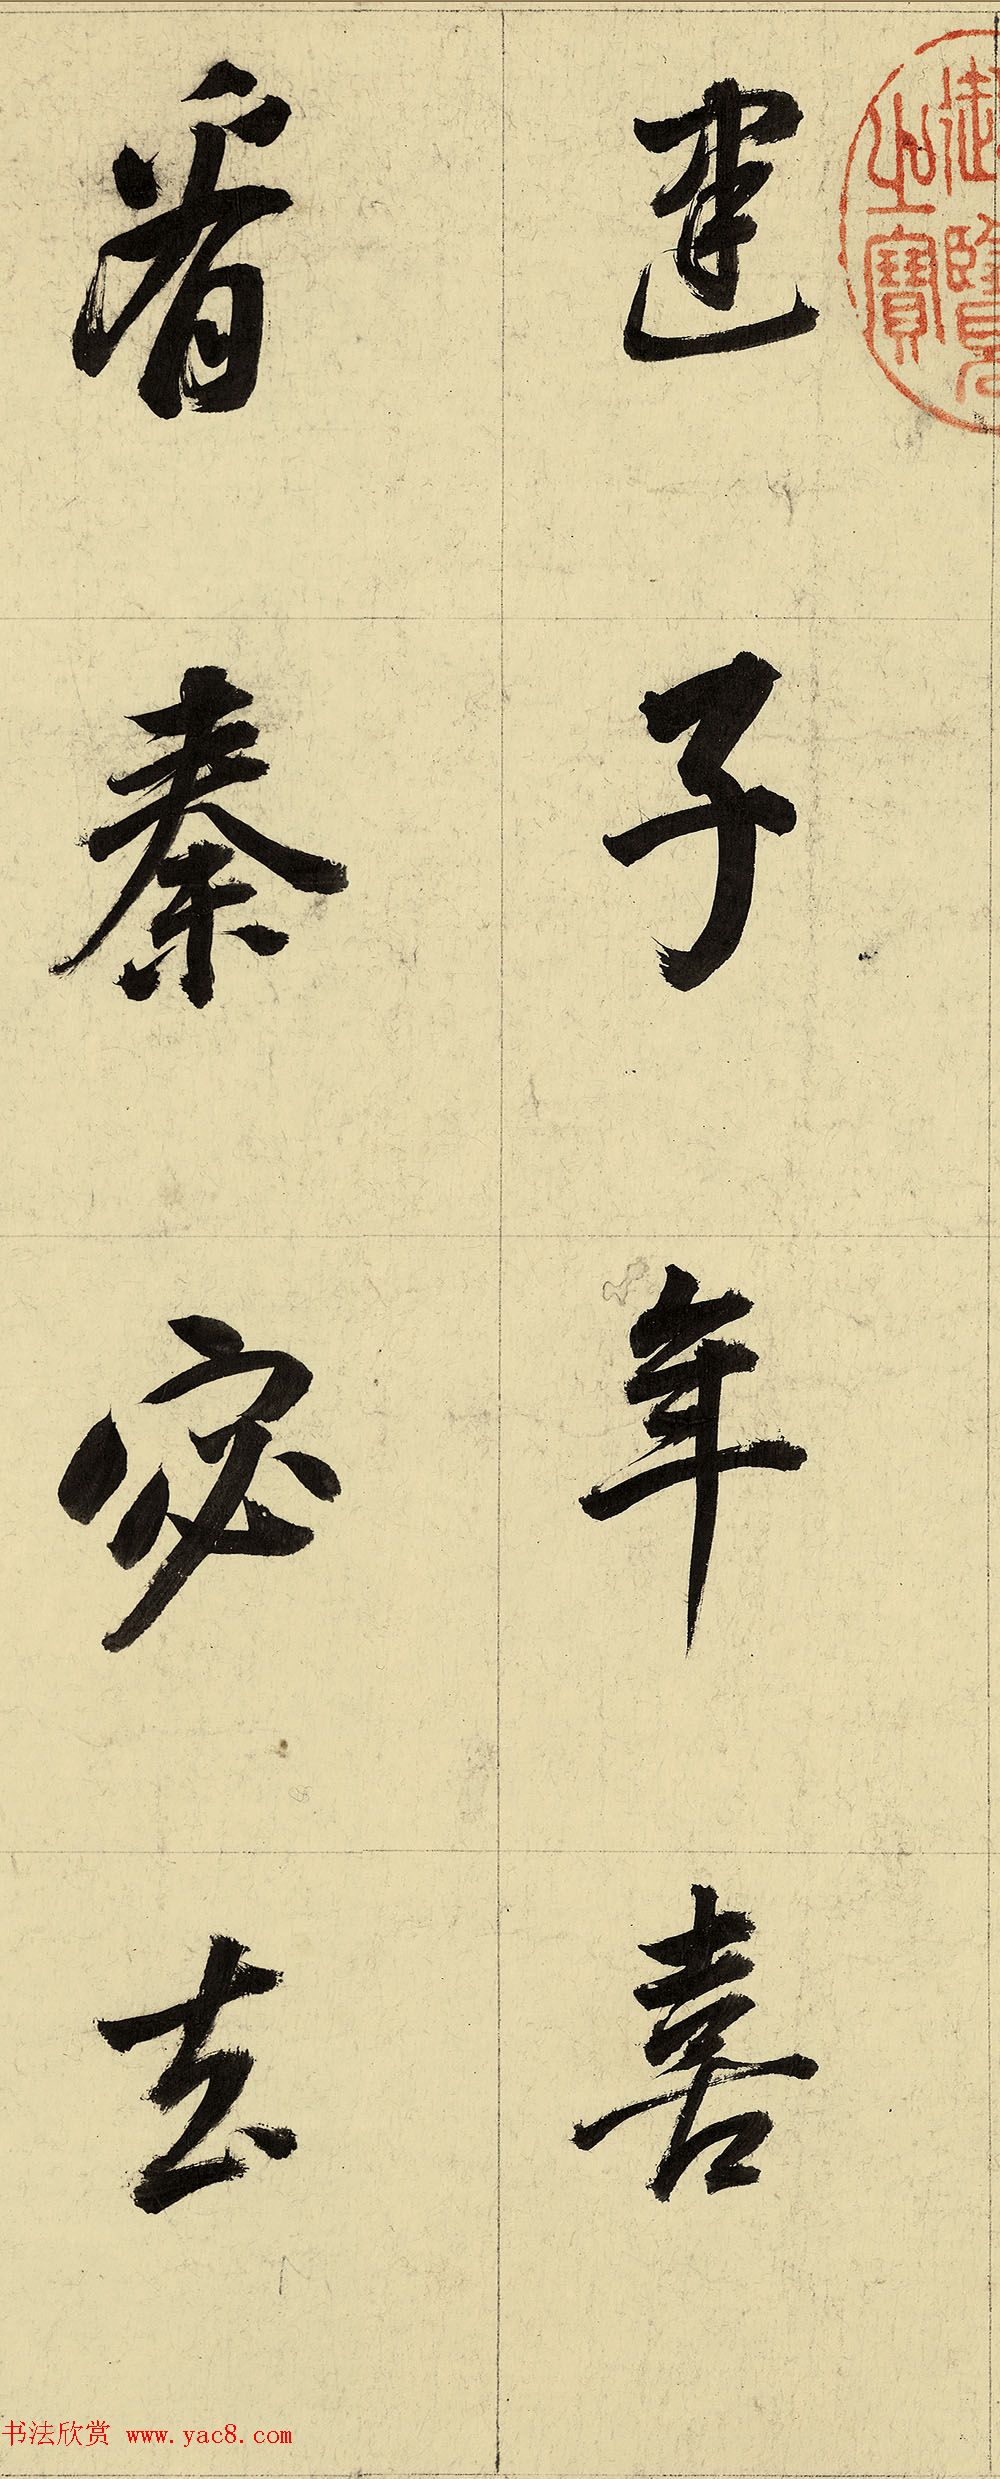 建子年喜
看秦宓去
御覽之寶
书法欣赏 www.yac8.com